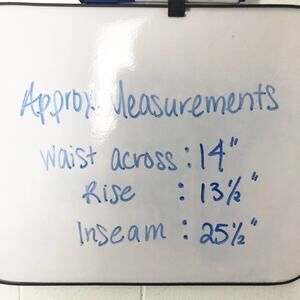 Approx Measurements
Waist across : 14"
Rise : 13½"
Inseam : 25½"